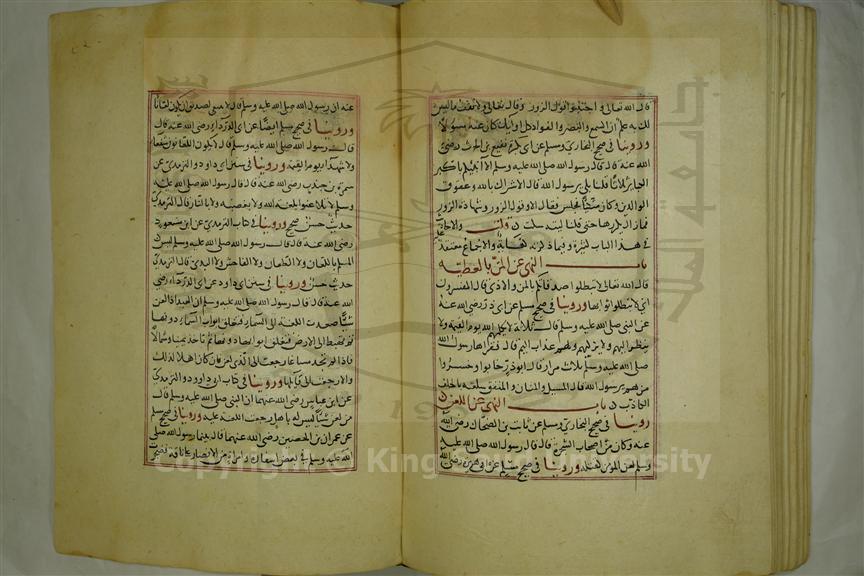 قال الله تعالى واجتنبوا قول الزور وقال تعالى ولا تقف ما ليس
لك به علم ان السمع والبصر والفواد كل اوليك كان عنه مسولا
وروينا في صحيح البخاري ومسلم عن ابي بكرة نفيع بن الحرث رضي
الله عنه قال قال رسول الله صلى الله عليه وسلم الا انبيكم باكبر
الكباير ثلاثا قلنا بلى يرسول الله قال الاشراك بالله وعقوق
الوالدين وكان متكيا فجلس فقال الا وقول الزور وشهادة الزور
فما زال يكررها حتى قلنا ليته سكت قلت والاحاديث
في هذا الباب كثيرة وفيما ذكرته كفاية والاجماع منعقد عليه
باب النهي عن المن بالعطية
قال الله تعالى لا تبطلوا صدقاتكم بالمن والاذى قال المفسرون
اي لا تبطلوا ثوابها وروينا في صحيح مسلم عن ابي ذر رضي الله عنه
عن النبي صلى الله عليه وسلم قال ثلاثة لا يكلمهم الله يوم القيمة ولا
ينظر اليهم ولا يزكيهم ولهم عذاب اليم قال فقراها رسول الله
صلى الله عليه وسلم ثلاث مرار قال ابو ذر خابوا وخسروا
من هم يرسول الله قال المسبل والمنان والمنفق سلعته بالحلف
الكاذب باب النهي عن اللعن
روينا في صحيح البخاري ومسلم عن ثابت بن الضحاك رضي الله
عنه وكان من اصحاب الشجرة قال قال رسول الله صلى الله عليه
وسلم لعن المومن كقتله وروينا في صحيح مسلم عن ابي هريرة رضي الله
عنه ان رسول الله صلى الله عليه وسلم قال لا ينبغي لصديق ان يكون لعانا
وروينا في صحيح مسلم ايضا عن ابي الدرداء رضي الله عنه قال
قال رسول الله صلى الله عليه وسلم لا يكون اللعانون شفعاء
ولا شهداء يوم القيمة وروينا في سنن ابي داود والترمذي عن
سمرة بن جندب رضي الله عنه قال قال رسول الله صلى الله عليه
وسلم لا تلاعنوا بلعنة الله ولا بغضبه ولا بالنار قال الترمذي
حديث حسن صحيح وروينا في كتاب الترمذي عن ابن مسعود
رضي الله عنه قال قال رسول الله صلى الله عليه وسلم ليس
المسلم بالطعان ولا اللعان ولا الفاحش ولا البذي قال الترمذي
حديث حسن وروينا في سنن ابي داود عن ابي الدرداء رضي
الله عنه قال قال رسول الله صلى الله عليه وسلم ان العبد اذا لعن
شيا صعدت اللعنة الى السماء فتغلق ابواب السماء دونها
ثم تهبط الى الارض فتغلق ابوابها دونها ثم تاخذ يمينا وشمالا
فاذا لم تجد مساغا رجعت الى الذي لعن فان كان اهلا لذلك
والا رجعت الى قايلها وروينا في كتاب ابي داود والترمذي
عن ابن عباس رضي الله عنهما ان النبي صلى الله عليه وسلم قال
من لعن شيا ليس له باهل رجعت اللعنة عليه وروينا في صحيح مسلم
عن عمران بن الحصين رضي الله عنهما قال بينما رسول الله صلى
الله عليه وسلم في بعض اسفاره وامراة من الانصار على ناقة فضجرت
جامعة الملك سعود
1957
Copyright © King Saud University